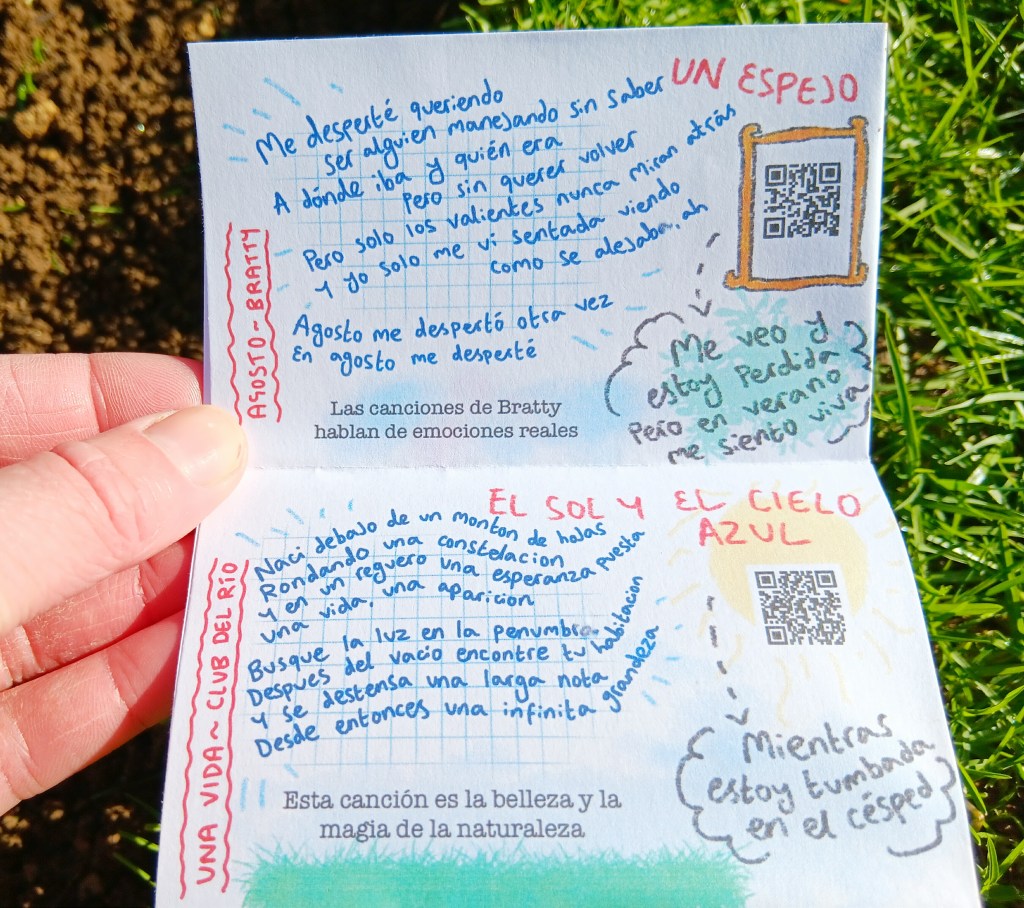 UN ESPEJO
Me desperté queriendo
ser alguien manejando sin saber
A dónde iba y quién era
Pero sin querer volver
Pero solo los valientes nunca miran atrás
Y yo solo me vi sentada viendo
como se alejaba, ah
Agosto me despertó otra vez
En agosto me desperté
AGOSTO ~ BRATTY
Las canciones de Bratty
hablan de emociones reales
Me veo y
estoy perdida
Pero en verano
me siento viva
EL SOL Y EL CIELO
AZUL
Naci debajo de un monton de hojas
Rondando una constelacion
Y en un reguero una esperanza puesta
una vida, una aparicion
Busque la luz en la penumbra
Despues del vacio encontre tu habitacion
Y se destensa una larga nota
Desde entonces una infinita grandeza
UNA VIDA ~ CLUB DEL RÍO
Esta canción es la belleza y la
magia de la naturaleza
Mientras
estoy tumbada
en el césped